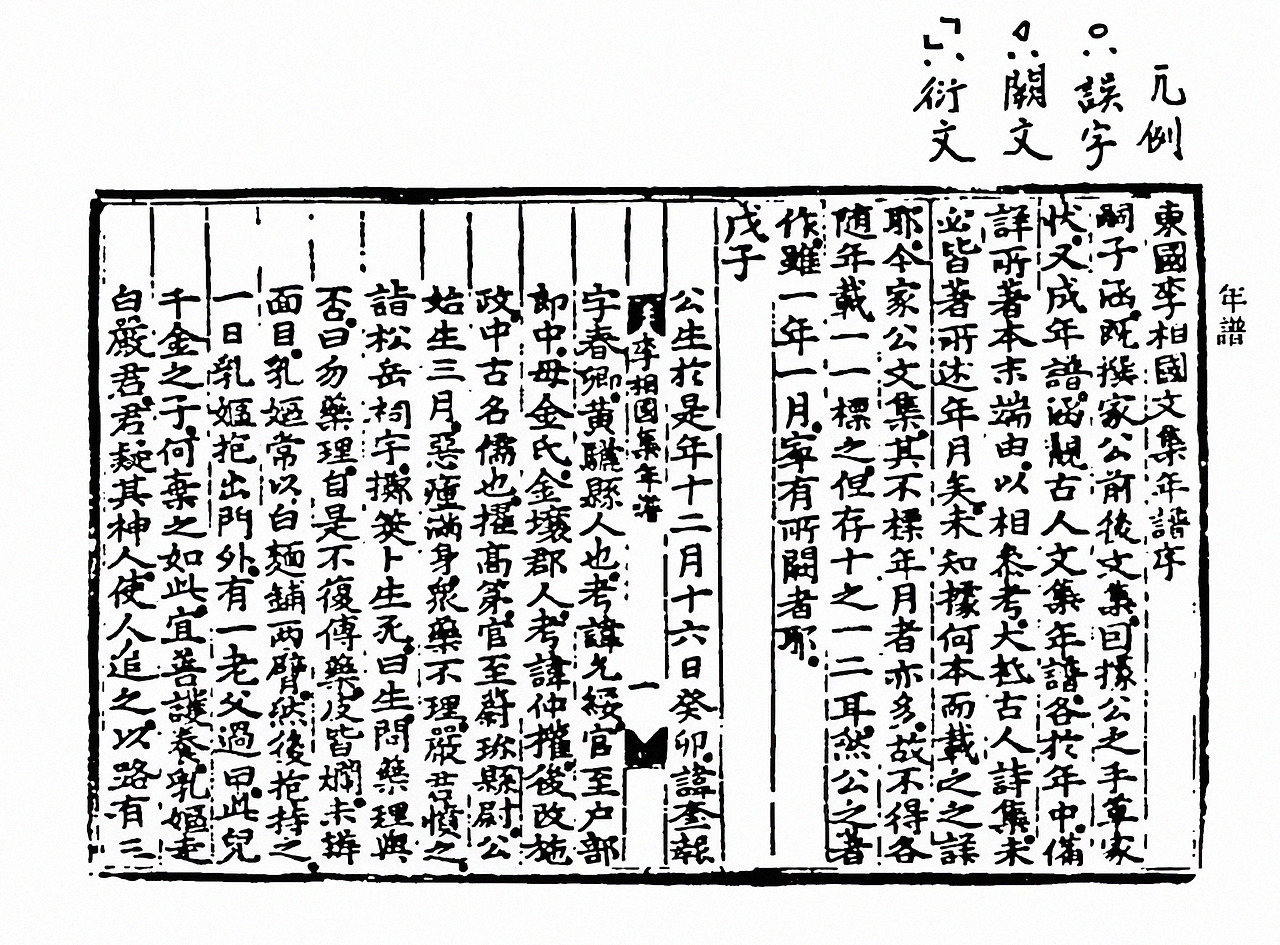 凡例
誤字
闕文
衍文
年譜
東國李相國文集年譜序
嗣子涵既撰家公前後文集因據公之手草家
狀又成年譜涵覩古人文集年譜各於年中備
詳所著本末端由以相叅考大抵古人詩集未
必皆著所述年月矣未知據何本而載之之詳
耶今家公文集其不標年月者亦多故不得各
随年載一一標之但存十之一二耳然公之著
作雖一年一月寜有所闕者耶
戊子
公生於是年十二月十六日癸卯諱奎報
李相國集年譜 一
字春卿黄驪縣人也考諱允綏官至户部
郎中母金氏金壤郡人考諱仲權後改施
政中古名儒也擢高第官至蔚珎縣尉公
始生三月惡瘇滿身衆藥不理嚴君憤之
詣松岳祠宇擲筊卜生死曰生問藥理與
否曰勿藥理自是不復傅藥皮皆爛未辨
面目乳嫗常以白麵鋪兩臂然後抱持之
一日乳嫗抱出門外有一老父過曰此兒
千金之子何棄之如此宜善護養乳嫗走
白嚴君君疑其神人使人追之以路有三